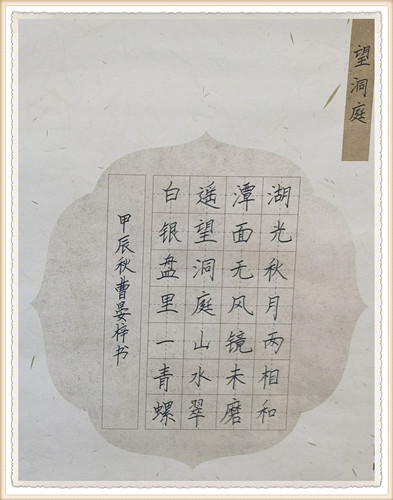 望洞庭
湖光秋月两相和
潭面无风镜未磨
遥望洞庭山水翠
白银盘里一青螺
甲辰秋曹晏梓书